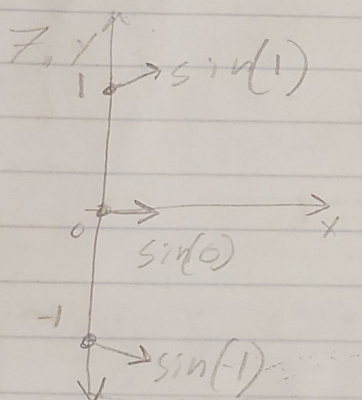 Z, Y
1 sin(1)
0
x
sin(0)
-1
sin(-1)